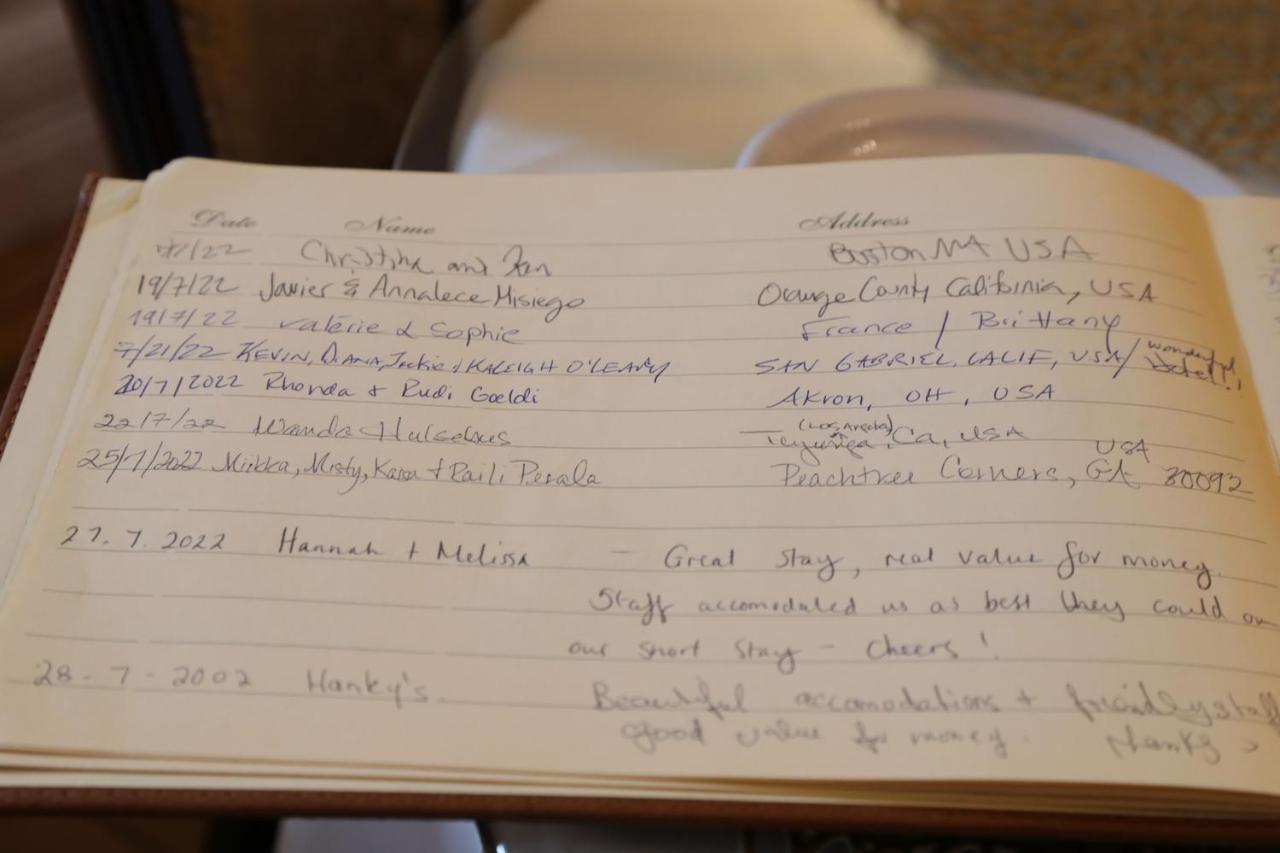 Date Name Address
/7/22 Christina and Boston MA USA
19/7/22 Javier & Annalece Misiego Orange County California, USA
19/7/22 Valérie & Sophie France / Brittany
7/21/22 KEVIN, DIANA, Jackie & KALEIGH O'LEARY SAN GABRIEL, CALIF, USA/ wonderful
hotel!!
20/7/2022 Rhonda & Rudi Gaeldi Akron, OH, USA
(Los Angeles)
22/7/22 Wanda Hulsebus Ca, USA
USA
25/7/2022 Miikka, Misty, Kara & Raili Perala Peachtree Corners, GA 30092
27.7.2022 Hannah + Melissa - Great stay, real value for money.
Staff accomodated us as best they could on
our short stay - Cheers!
28-7-2002 Hanky's. Beautiful accomodations + friendly staff
good value for money. thanks